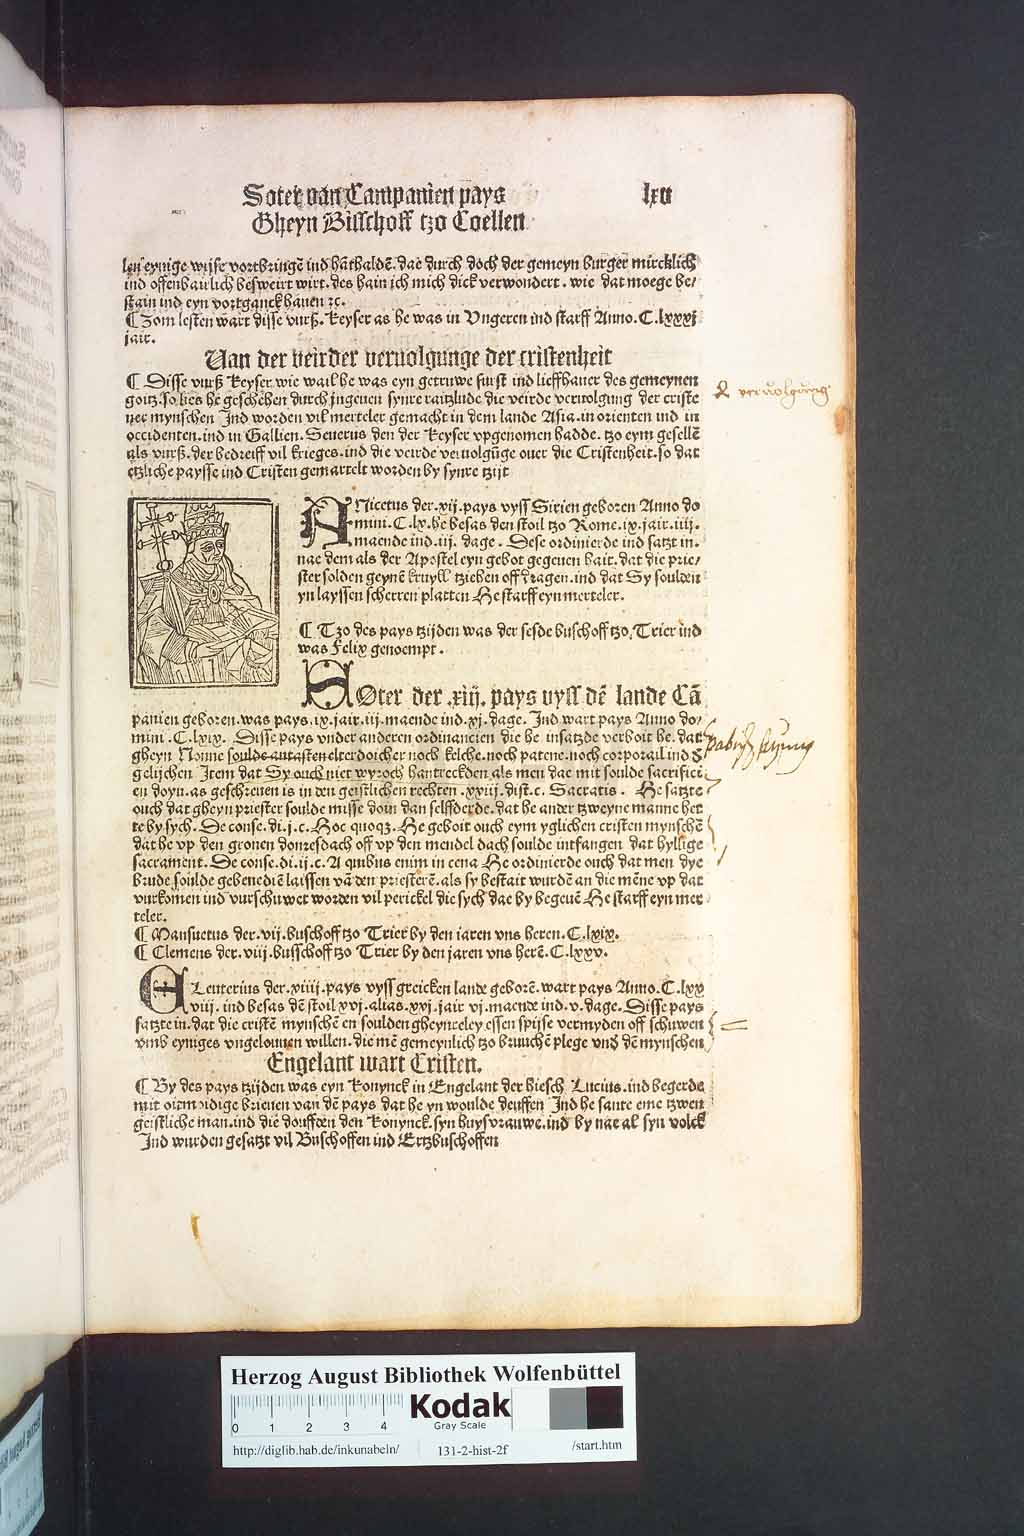 Soter van Campanien pays lxv
Gheyn Bisschoff tzo Coellen
eynige wijse vortbringē ind hāthaldē. dae durch doch der gemeyn burger mircklich
ind offenbairlich besweirt wirt. des hain ich mich dick verwondert. wie dat moege be/
stain ind eyn vortganck hauen ꝛc.
¶ Zom lesten wart disse vurß. keyser as he was in Vngeren ind starff Anno. C. lxxxi
jair.
Uan der veirder veruolgunge der cristenheit
¶ Disse vurß keyser. wie wail he was eyn getruwe furst ind lieffhauer des gemeynen
goitz. so lies he geschehen durch jngeuen synre raitzlude die veirde veruolgung der criste
ner mynschen Ind worden vil merteler gemacht in dem lande Asia. in orienten ind in
occidenten. ind in Gallien. Seuerus den der keyser vpgenomen hadde. tzo eym gesellē
als vurß. der bedreiff vil krieges. ind die veirde veruolgūge ouer die Cristenheit. so dat
etzliche paysse ind Cristen gemartelt worden by synre tzijt
ANicetus der. xij. pays vyss Sirien geboren Anno do
mini. C. lx. he besas den stoil tzo Rome. ix. jair. iiij.
maende ind. iij. dage. Dese ordinierde ind satzt in.
nae dem als der Apostel eyn gebot gegeuen hait. dat die prie/
ster solden geynē kruyll tziehen off dragen. ind dat Sy soulden
yn layssen scherren platten He starff eyn merteler.
¶ Tzo des pays tzijden was der sesde buschoff tzo Trier ind
was Felix genoempt.
SOter der. xiij. pays vyss dē lande Cā
panien geboren. was pays. ix. jair. iij. maende ind. xj. dage. Ind wart pays Anno do/
mini. C. lxix. Disse pays vnder anderen ordinancien die he insatzde verboit he. dat
gheyn Nonne soulde antasten elter doicher noch kelche. noch patene. noch corporail ind ds
gelijchen Item dat Sy ouch niet wyroch hantreckden als men dae mit soulde sacrificē
en doyn. as geschreuen is in den geistlichen rechten. xxiij. dist. c. Sacratis. He satzte
ouch dat gheyn priester soulde misse doin dan selffderde. dat he ander tzweyne manne het
te by sych. De conse. di. j. c. Hoc quoqꝫ. He geboit ouch eym yglichen cristen mynschē
dat he vp den gronen donresdach off vp den mendel dach soulde intfangen dat hyllige
sacrament. De conse. di. ij. c. A quibus enim in cena He ordinierde ouch dat men dye
brude soulde gebenediē laissen vā den priesterē. als sy bestait wurdē an die mēne vp dat
vurkomen ind vurschuwet worden vil perickel die sych dae by begeuē He starff eyn mer
teler.
¶ Mansuetus der. vij. buschoff tzo Trier by den iaren vns heren. C. lxix.
¶ Clemens der. viij. busschoff tzo Trier by den jaren vns herē. C. lxxv.
ELeuterius der. xiiij. pays vyss greicken lande geborē. wart pays Anno. C. lxx
viij. ind besas dē stoil xvj. alias. xxj. jair vj. maende ind. v. dage. Disse pays
satzte in. dat die cristē mynschē en soulden gheynreley essen spijse vermyden off schuwen
vmb eyniges vngelouuen willen. die mē gemeynlich tzo bruuchē plege vnd dē mynschen
Engelant wart Cristen.
¶ By des pays tzijden was eyn konynck in Engelant der hiesch Lucius. ind begerde
mit oitmoidige brieuen van dē pays dat he yn woulde deuffen Ind he sante eme tzwen
geistliche man. ind die doufften den konynck. syn huysvrauwe. ind by nae al syn volck
Ind wurden gesatzt vil Buschoffen ind Ertzbuschoffen
veruolgung
Herzog August Bibliothek Wolfenbüttel
0 1 2 3 4
Kodak
Gray Scale
http://diglib.hab.de/inkunabeln/ 131-2-hist-2f /start.htm